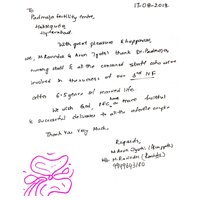 17-08-2018
To
Padmaja fertility centre,
Habsiguda,
Hyderabad.
With great pleasure & happiness,
we, M Ravinder & Arun Jyothi thank Dr. Padmaja,
nursing staff & all the concerned staff who were
involved in the success of our 2nd IVF
after 6.5 years of married life.
We wish God, PFC have more fruitful
& successful deliveries to all the infertile couples
Thank You Very Much.
Regards,
M. Arun Jyothi
M. Ravinder